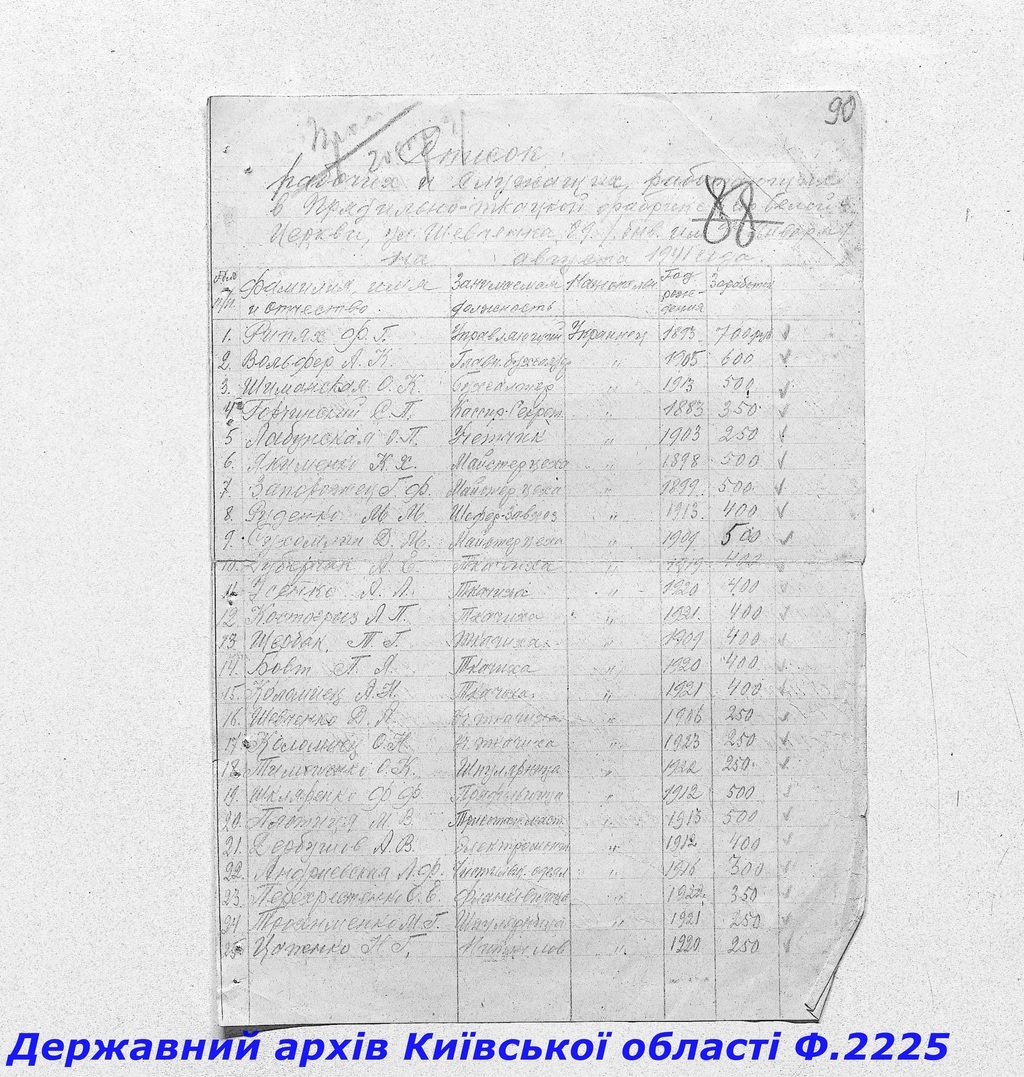 90
Пром
Список
рабочих и служащих, работающих
в Прядильно-ткацкой фабрике в Белой
88
Церкви, ул. Шевченка, 89
на августа 1941 года.
№№ п/п Фамилия имя и отчество Занимаемая должность Год рождения Заработок
1. Рипях Ф. Г. Управляющий Украинец 1893 700 руб
2. Вольфер А. К. Главн. бухгалтер " 1905 600
3. Шуманская О. К. Бухгалтер " 1913 500
4 С. П. Кассир-Секрет. " 1883 350
5 Лабунская О. П. Учетчик " 1903 250
6. Якименко К. Х. Майстер цеха " 1898 500
7. Заповожец Г. Ф. Майстер цеха " 1899 500
8. Руденко М. М. Шофер-завхоз " 1913 400
9. Сухомлин Д. М. Майстер цеха " 1909 500
10. Губерчак А. Е. Ткачиха " 1919 400
11. Усенко А. Л. Ткачиха " 1920 400
12 Костогрыз Л П. Ткачиха " 1921 400
13. Щербак Т. Г. Ткачиха " 1909 400
14. Бовт П. А. Ткачиха " 1920 400
15. Коломиец А. Н. Ткачиха " 1921 400
16. Шевченко Д. А. уч. ткачиха " 1906 250
17 Коломиец О. Н. уч. ткачиха " 1923 250
18. Тимошенко О. К. Шпулярница " 1922 250
19. Шкляренко Ф Ф Прядильщица " 1912 500
20. М. В. " 1913 500
21. А. В. Электромонт " 1912 400
22. Андриевская Л. Ф. " 1916 300
23. Перехрестенко Е. Е. " 1922 350
24 Трофименко М. Г. Шпулярница " 1921 250
25. Цапенко Н Г. " 1920 250
Державний архів Київської області Ф.2225